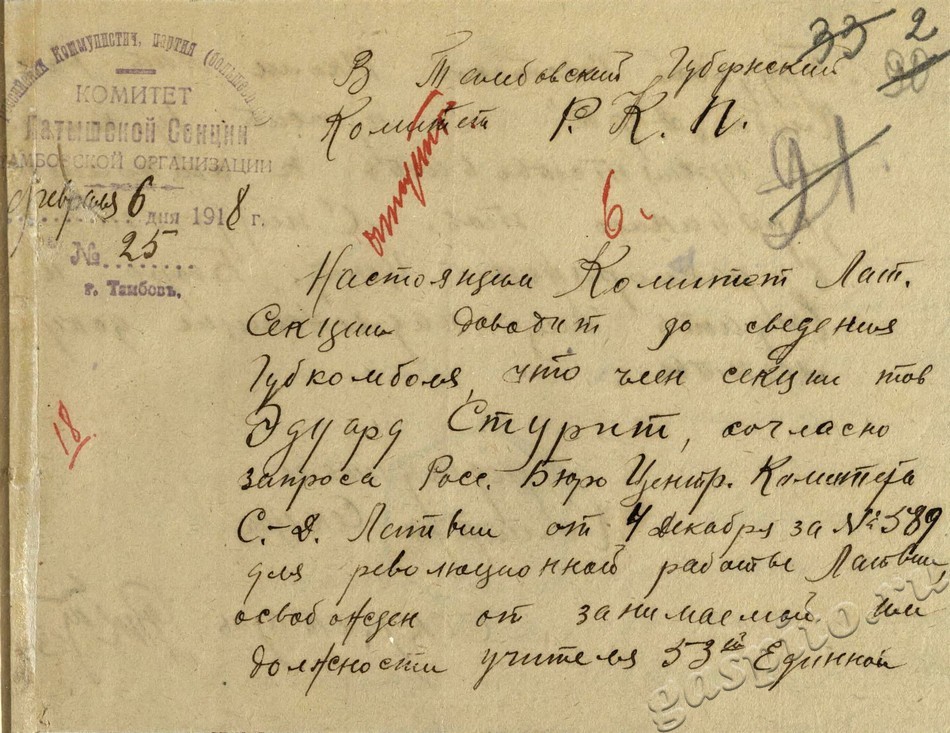 33 2
30
В Тамбовский Губернский
Комитет Р. К. П.
Российская Коммунистич. партия (большев
КОМИТЕТ
Латышской Секции
ТАМБОВСКОЙ ОРГАНИЗАЦИИ
Февраля 6 дня 1918 г.
№ 25
г. Тамбовъ.
21
6.
Настоящим Комитет Лат.
Секции доводит до сведения
Губкомболя, что член секции тов
Эдуард Стурит, согласно
запроса Росс. Бюро Центр. Комитета
С.-Д. Латвии от 4 декабря за № 589
для революционной работы Латвии
освобожден от занимаемой им
должности учителя 53й Единной
18
gaspito.ru